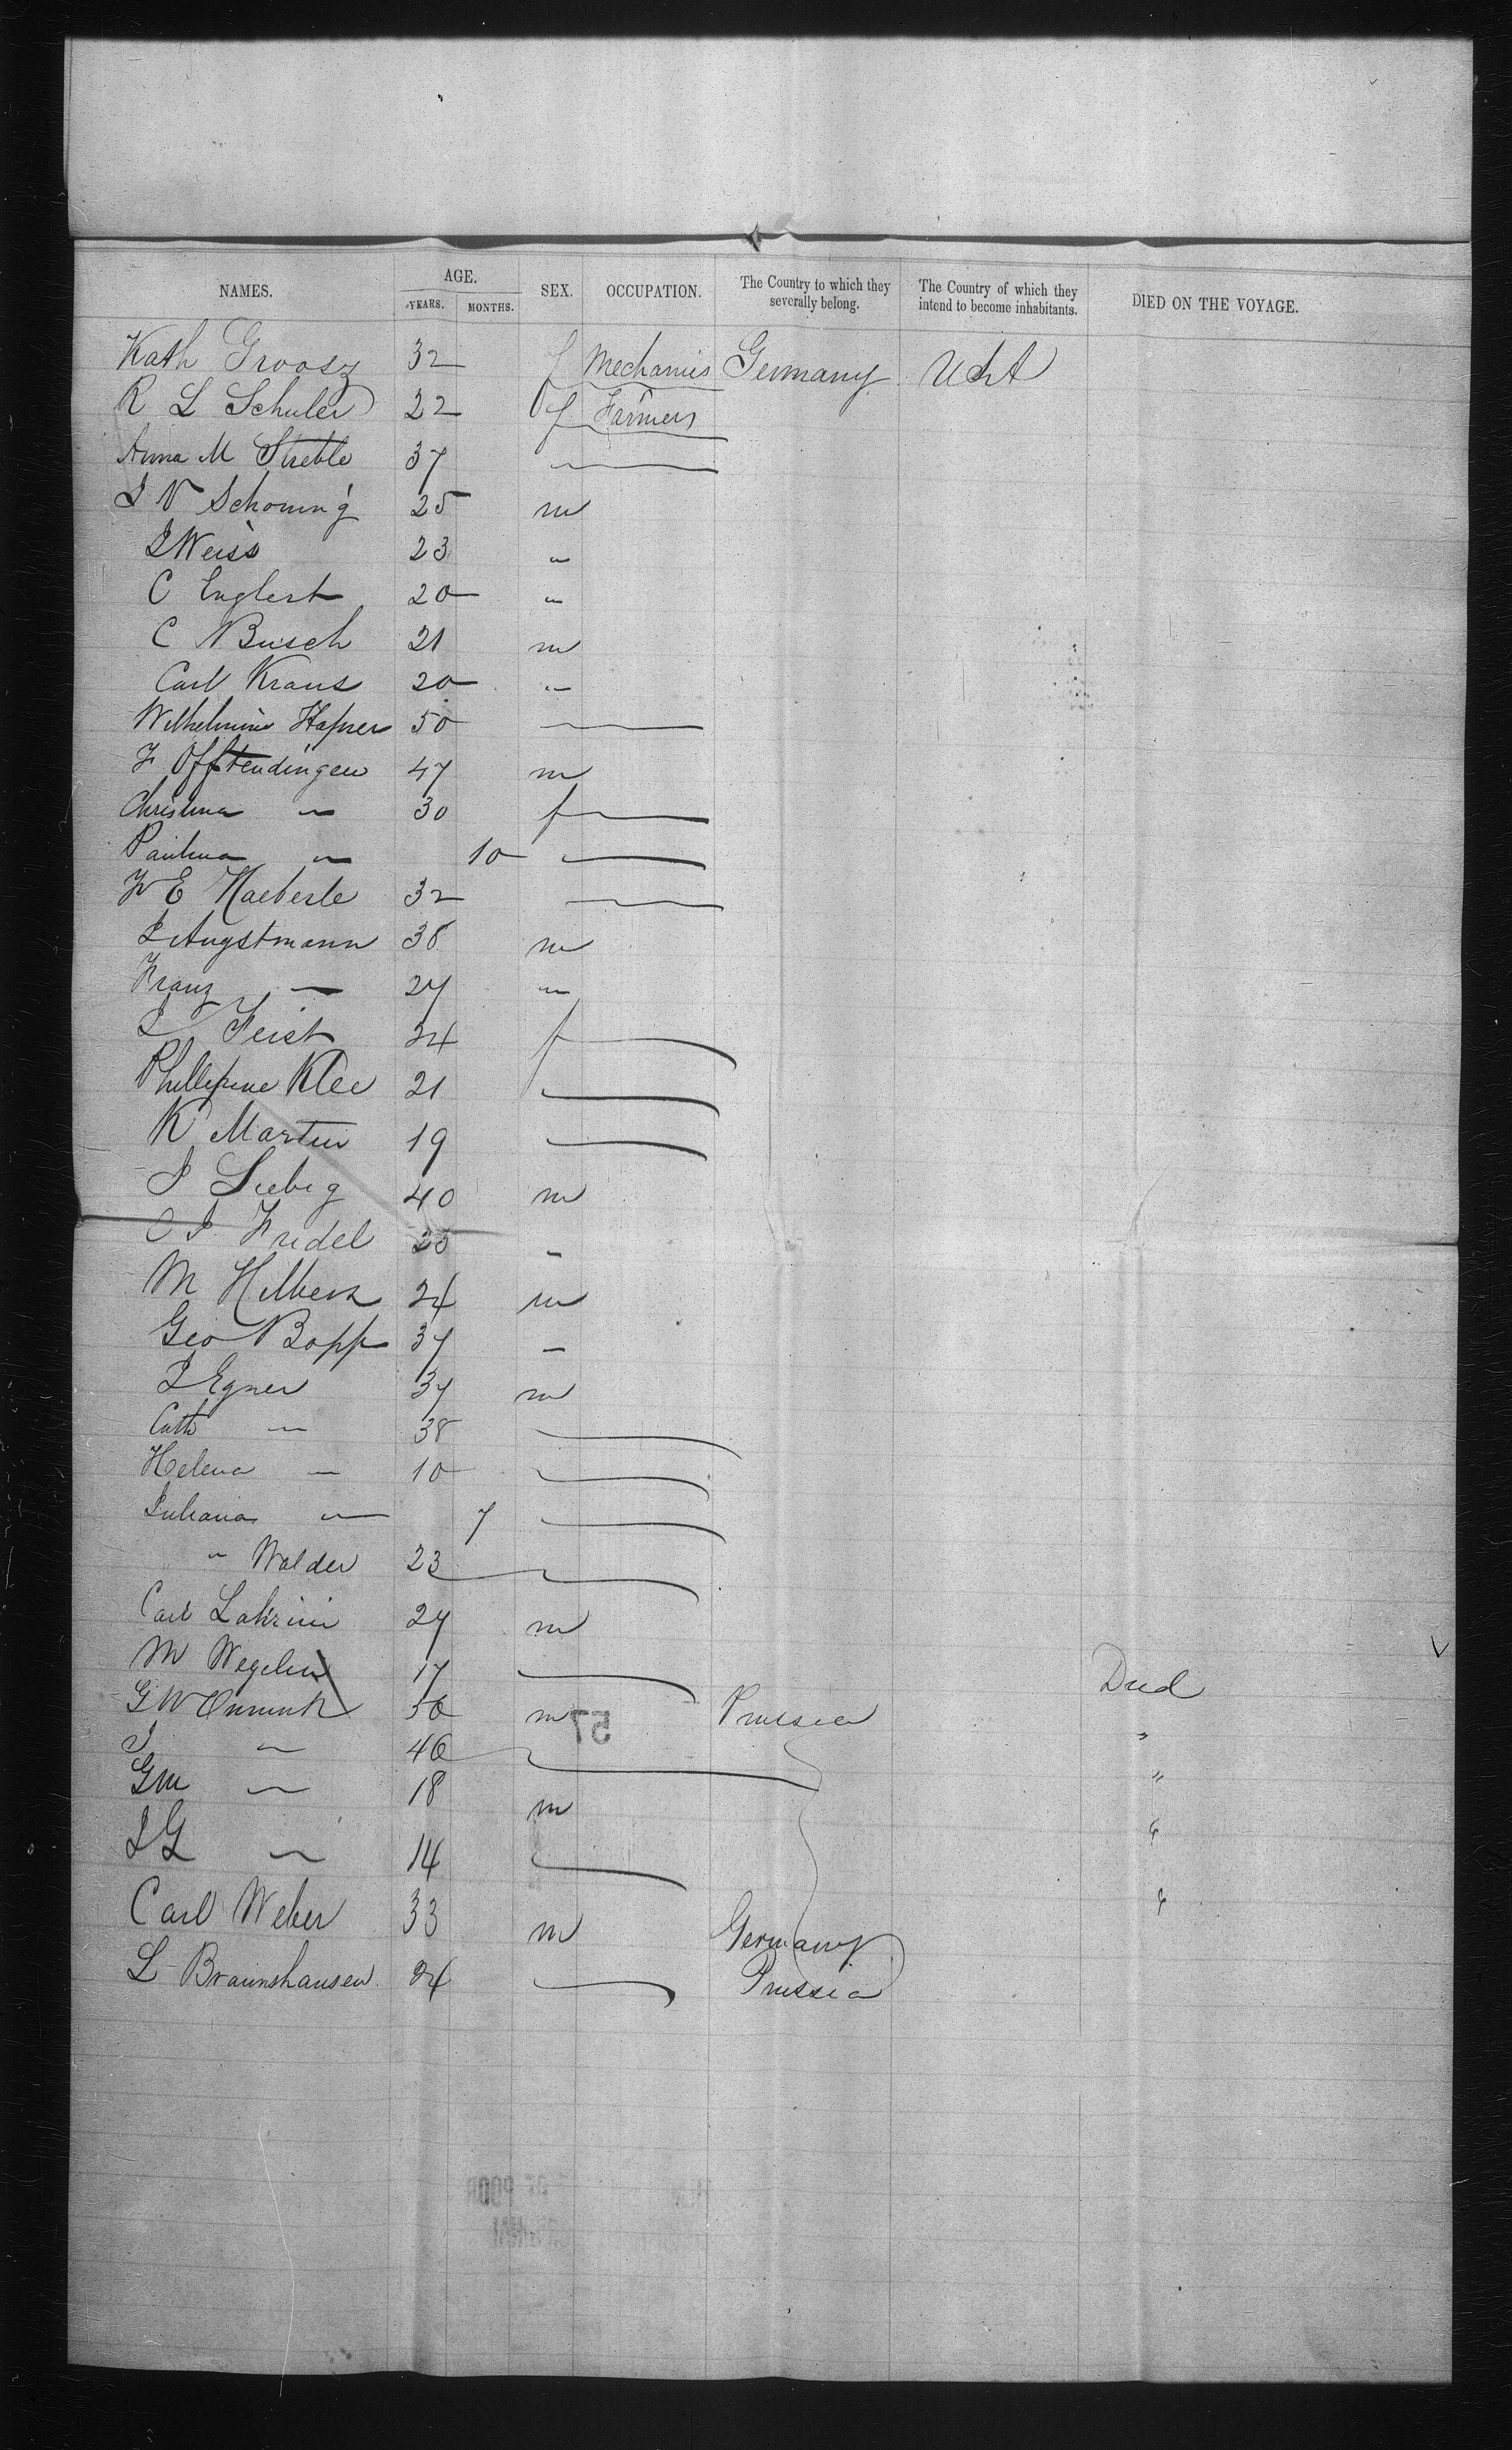 NAMES. AGE. SEX. OCCUPATION. The Country to which they severally belong. The Country of which they intend to become inhabitants. DIED ON THE VOYAGE.
YEARS. MONTHS.
Kath Groosz 32 f Mechanics Germany USA
R L Schuler 22 f Farmers
Anna M Streble 37
J V Schoning 25 m
J Weiss 23 "
C Englert 20 "
C Busch 21 m
Carl Kraus 20 "
Wilhelmine Hafner 50
F Offtendingen 47 m
Christina " 30 f
Paulina " 10
W E Haeberle 32
J Augstmann 38 m
Franz " 27 "
J Feist 24 f
Phillepine Klee 21
K Martin 19
J Liebig 40 m
C J Fridel
M Hilbert 24 m
Geo Bopp 37 "
J Egner 37 m
Cath " 38
Helena " 10
Juliana " 7
" Walder 23
Carl 27 m
M Wegelin 17 Died
G W 50 m 57 Prussia "
J " 40 "
GM " 18 m "
JG " 14 "
Carl Weber 33 m Germany
L Braunshausen 24 Prussia